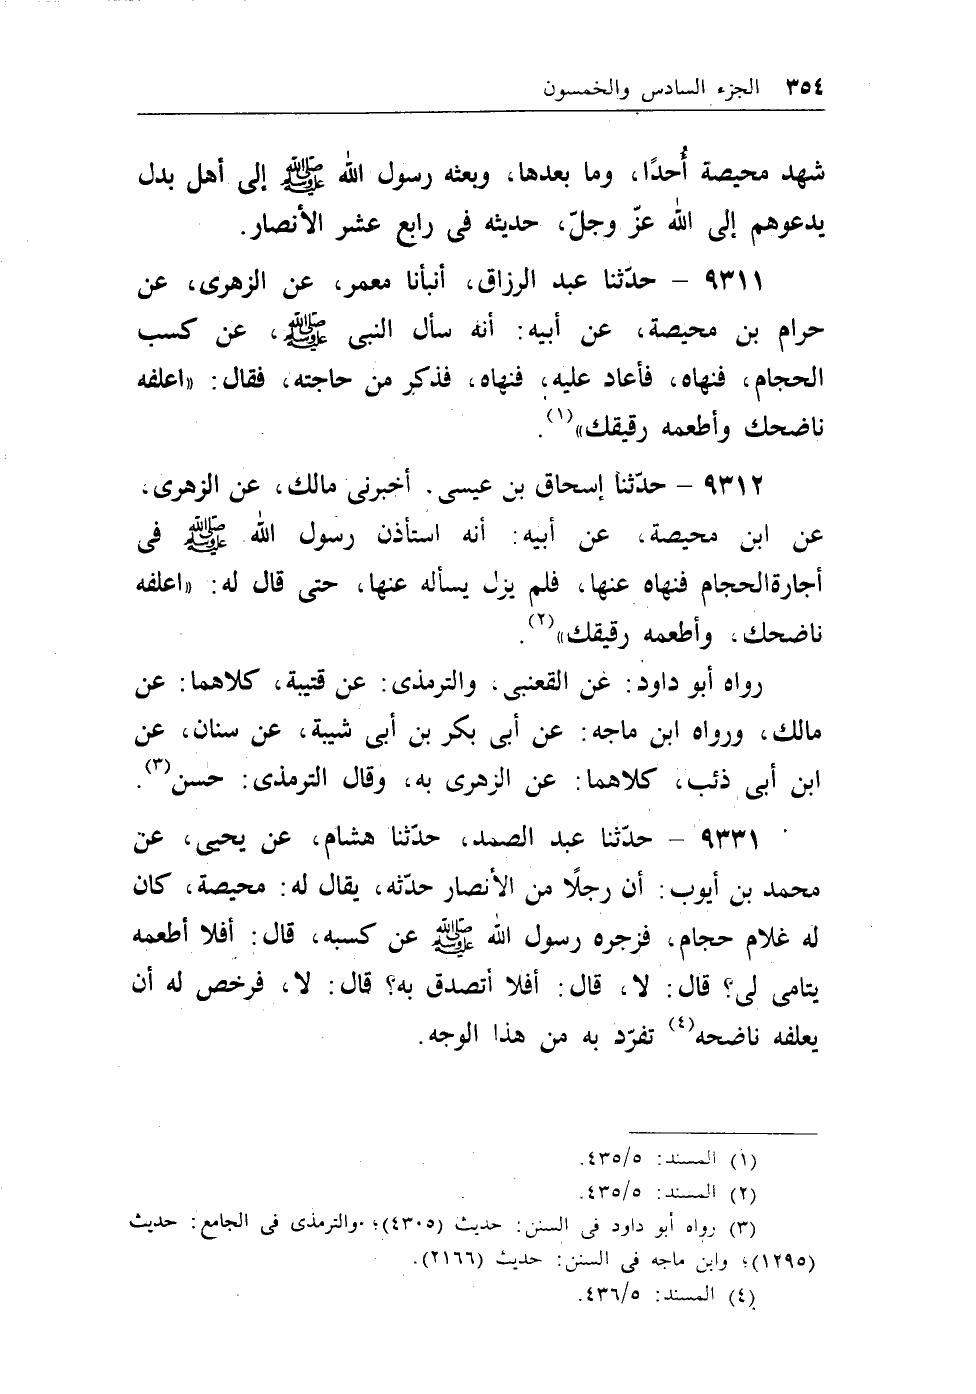 ٣٥٤ الجزء السادس والخمسون
شهد محيصة أُحدًا، وما بعدها، وبعثه رسول الله ﷺ إلى أهل بدل
يدعوهم إلى الله عزّ وجلّ، حديثه فى رابع عشر الأنصار.
٩٣١١ – حدّثنا عبد الرزاق، أنبأنا معمر، عن الزهرى، عن
حرام بن محيصة، عن أبيه: أنه سأل النبى ﷺ، عن كسب
الحجام، فنهاه، فأعاد عليه، فنهاه، فذكر من حاجته، فقال: «اعلفه
ناضحك وأطعمه رقيقك»(١).
٩٣١٢ – حدّثنا إسحاق بن عيسى. أخبرنى مالك، عن الزهرى،
عن ابن محيصة، عن أبيه: أنه استأذن رسول الله ﷺ فى
أجارةالحجام فنهاه عنها، فلم يزل يسأله عنها، حتى قال له: «اعلفه
ناضحك، وأطعمه رقيقك»(٢).
رواه أبو داود: عن القعنبى. والترمذى: عن قتيبة، كلاهما: عن
مالك، ورواه ابن ماجه: عن أبى بكر بن أبى شيبة، عن سنان، عن
ابن أبى ذئب، كلاهما: عن الزهرى به، وقال الترمذى: حسن(٣).
٩٣٣١ – حدّثنا عبد الصمد، حدّثنا هشام، عن يحيى، عن
محمد بن أيوب: أن رجلًا من الأنصار حدّثه، يقال له: محيصة، كان
له غلام حجام، فزجره رسول الله ﷺ عن كسبه، قال: أفلا أطعمه
يتامى لى؟ قال: لا، قال: أفلا أتصدق به؟ قال: لا، فرخص له أن
يعلفه ناضحه(٤) تفرّد به من هذا الوجه.
(١) المسند: ٤٣٥/٥.
(٢) المسند: ٤٣٥/٥.
(٣) رواه أبو داود فى السنن: حديث (٤٣٠٥)؛ والترمذى فى الجامع: حديث
(١٢٩٥)؛ وابن ماجه فى السنن: حديث (٢١٦٦).
(٤) المسند: ٤٣٦/٥.